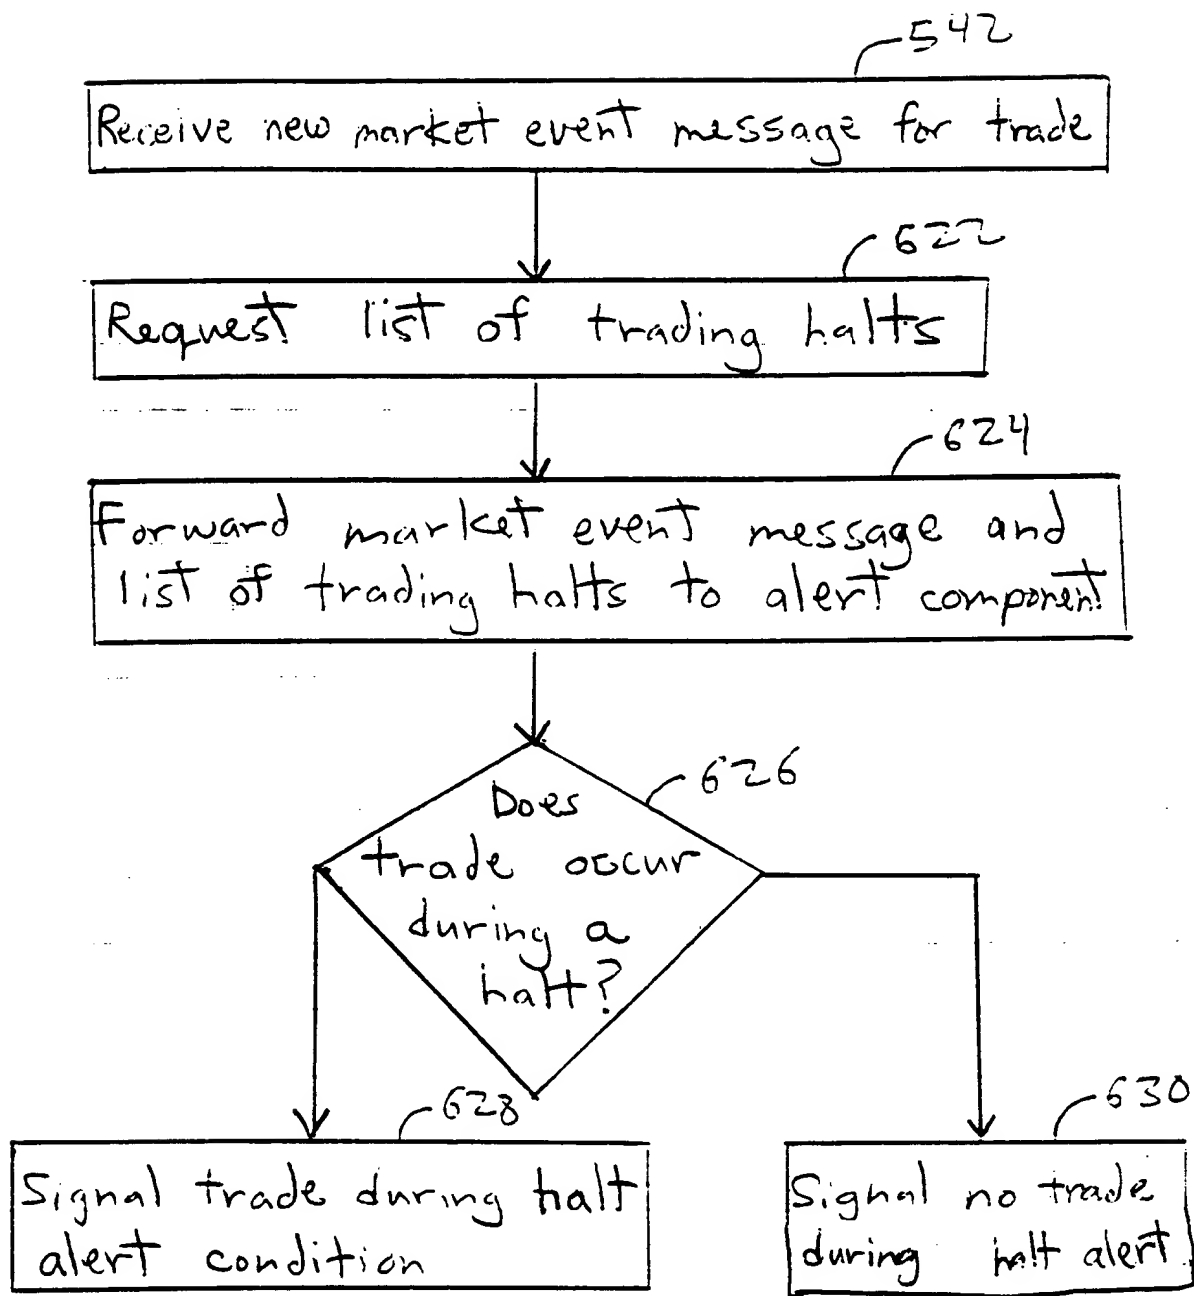 542
Receive new market event message for trade
622
Request list of trading halts
624
Forward market event message and
list of trading halts to alert component
626
Does
trade occur
during a
halt?
628
630
Signal trade during halt
alert condition
Signal no trade
during halt alert